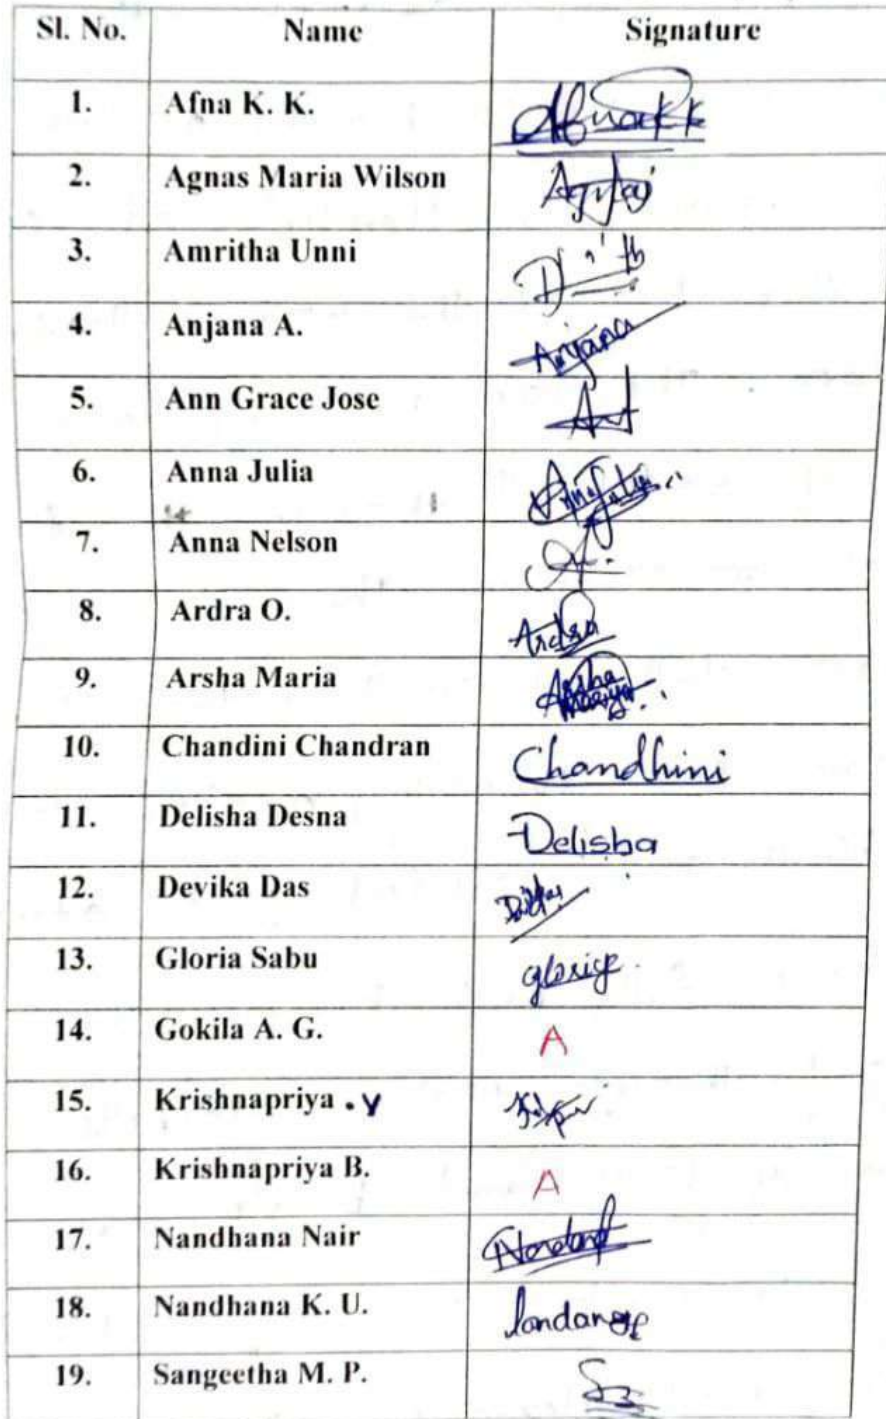 Sl. No. Name Signature
1. Afna K. K. Afna K K
2. Agnas Maria Wilson
3. Amritha Unni
4. Anjana A. Anjana
5. Ann Grace Jose
6. Anna Julia
7. Anna Nelson
8. Ardra O. Ardra
9. Arsha Maria Arsha
10. Chandini Chandran Chandhini
11. Delisha Desna Delisha
12. Devika Das
13. Gloria Sabu
14. Gokila A. G. A
15. Krishnapriya . V
16. Krishnapriya B. A
17. Nandhana Nair
18. Nandhana K. U.
19. Sangeetha M. P.